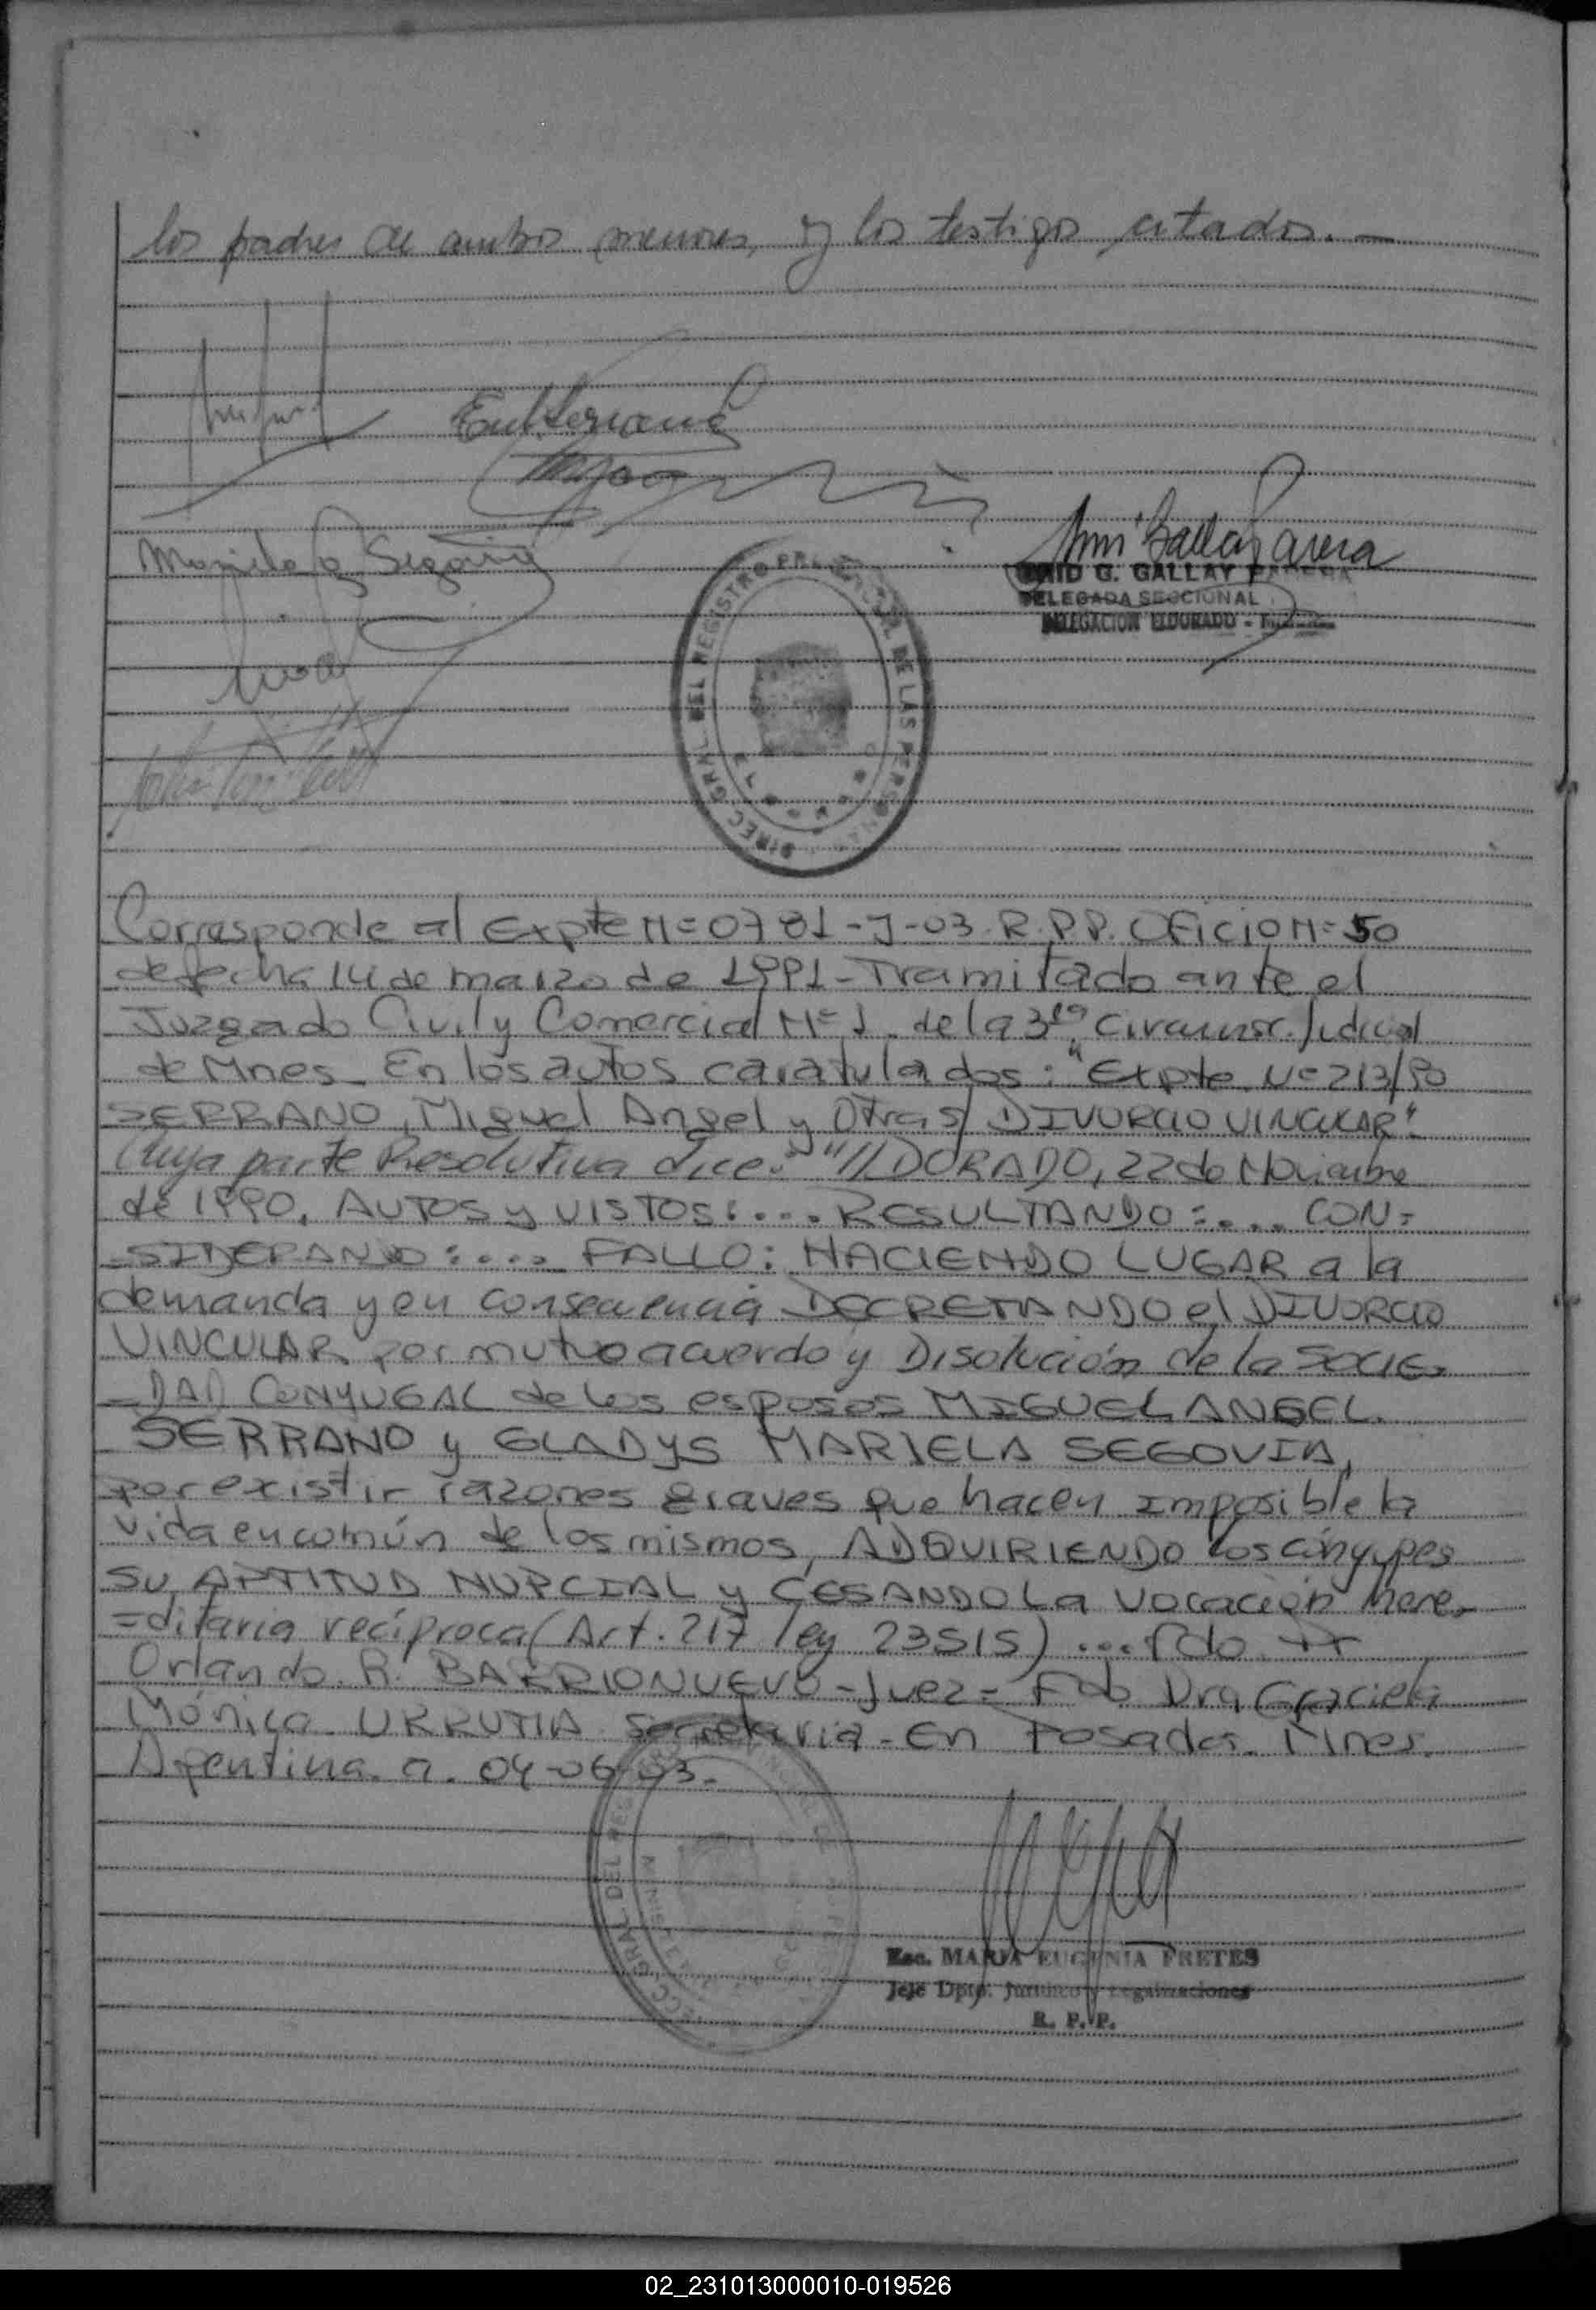 los padres de ambos menores, y los testigos citados. —
Mariela G Segovia
ENID G. GALLAY
DELEGADA SECCIONAL
DELEGACION ELDORADO -
DIREC. GRAL. DEL REGISTRO PROVINCIAL DE LAS PERSONAS
Corresponde al Expte N=0781-J-03-R.P.P. OFICIO N=50
de fecha 14 de marzo de 1991-Tramitado ante el
Juzgado Civil y Comercial N=1 de la 3ra circunsc. Judicial
de Mnes. En los autos caratulados: "Expte. N=213/90
SERRANO, Miguel Angel y Otra s/ DIVORCIO VINCULAR".
Cuya parte Resolutiva dice: "//DORADO, 22 de Noviembre
de 1990. AUTOS y VISTOS:.... RESULTANDO:.... CON=
=SIDERANDO:.... FALLO: HACIENDO LUGAR a la
demanda y en consecuencia DECRETANDO el DIVORCIO
VINCULAR por mutuo acuerdo y Disolución de la SOCIE=
=DAD CONYUGAL de los esposos MIGUEL ANGEL
SERRANO y GLADYS MARIELA SEGOVIA,
por existir razones graves que hacen imposible la
vida en común de los mismos, ADQUIRIENDO los cónyuges
su APTITUD NUPCIAL y CESANDO La vocación here=
=ditaria recíproca (Art. 217 ley 23515) ... Fdo. Dr
Orlando. R. BARRIONUEVO - Juez = Fdo Dra Graciela
Mónica URRUTIA Secretaria - En Posadas. Mnes.
Argentina. a. 04-06-03.-
GRAL. DEL
Esc. MARIA EUGENIA FRETES
Jefe Dpto. Jurídico y Legalizaciones
R. P. P.
02_231013000010-019526